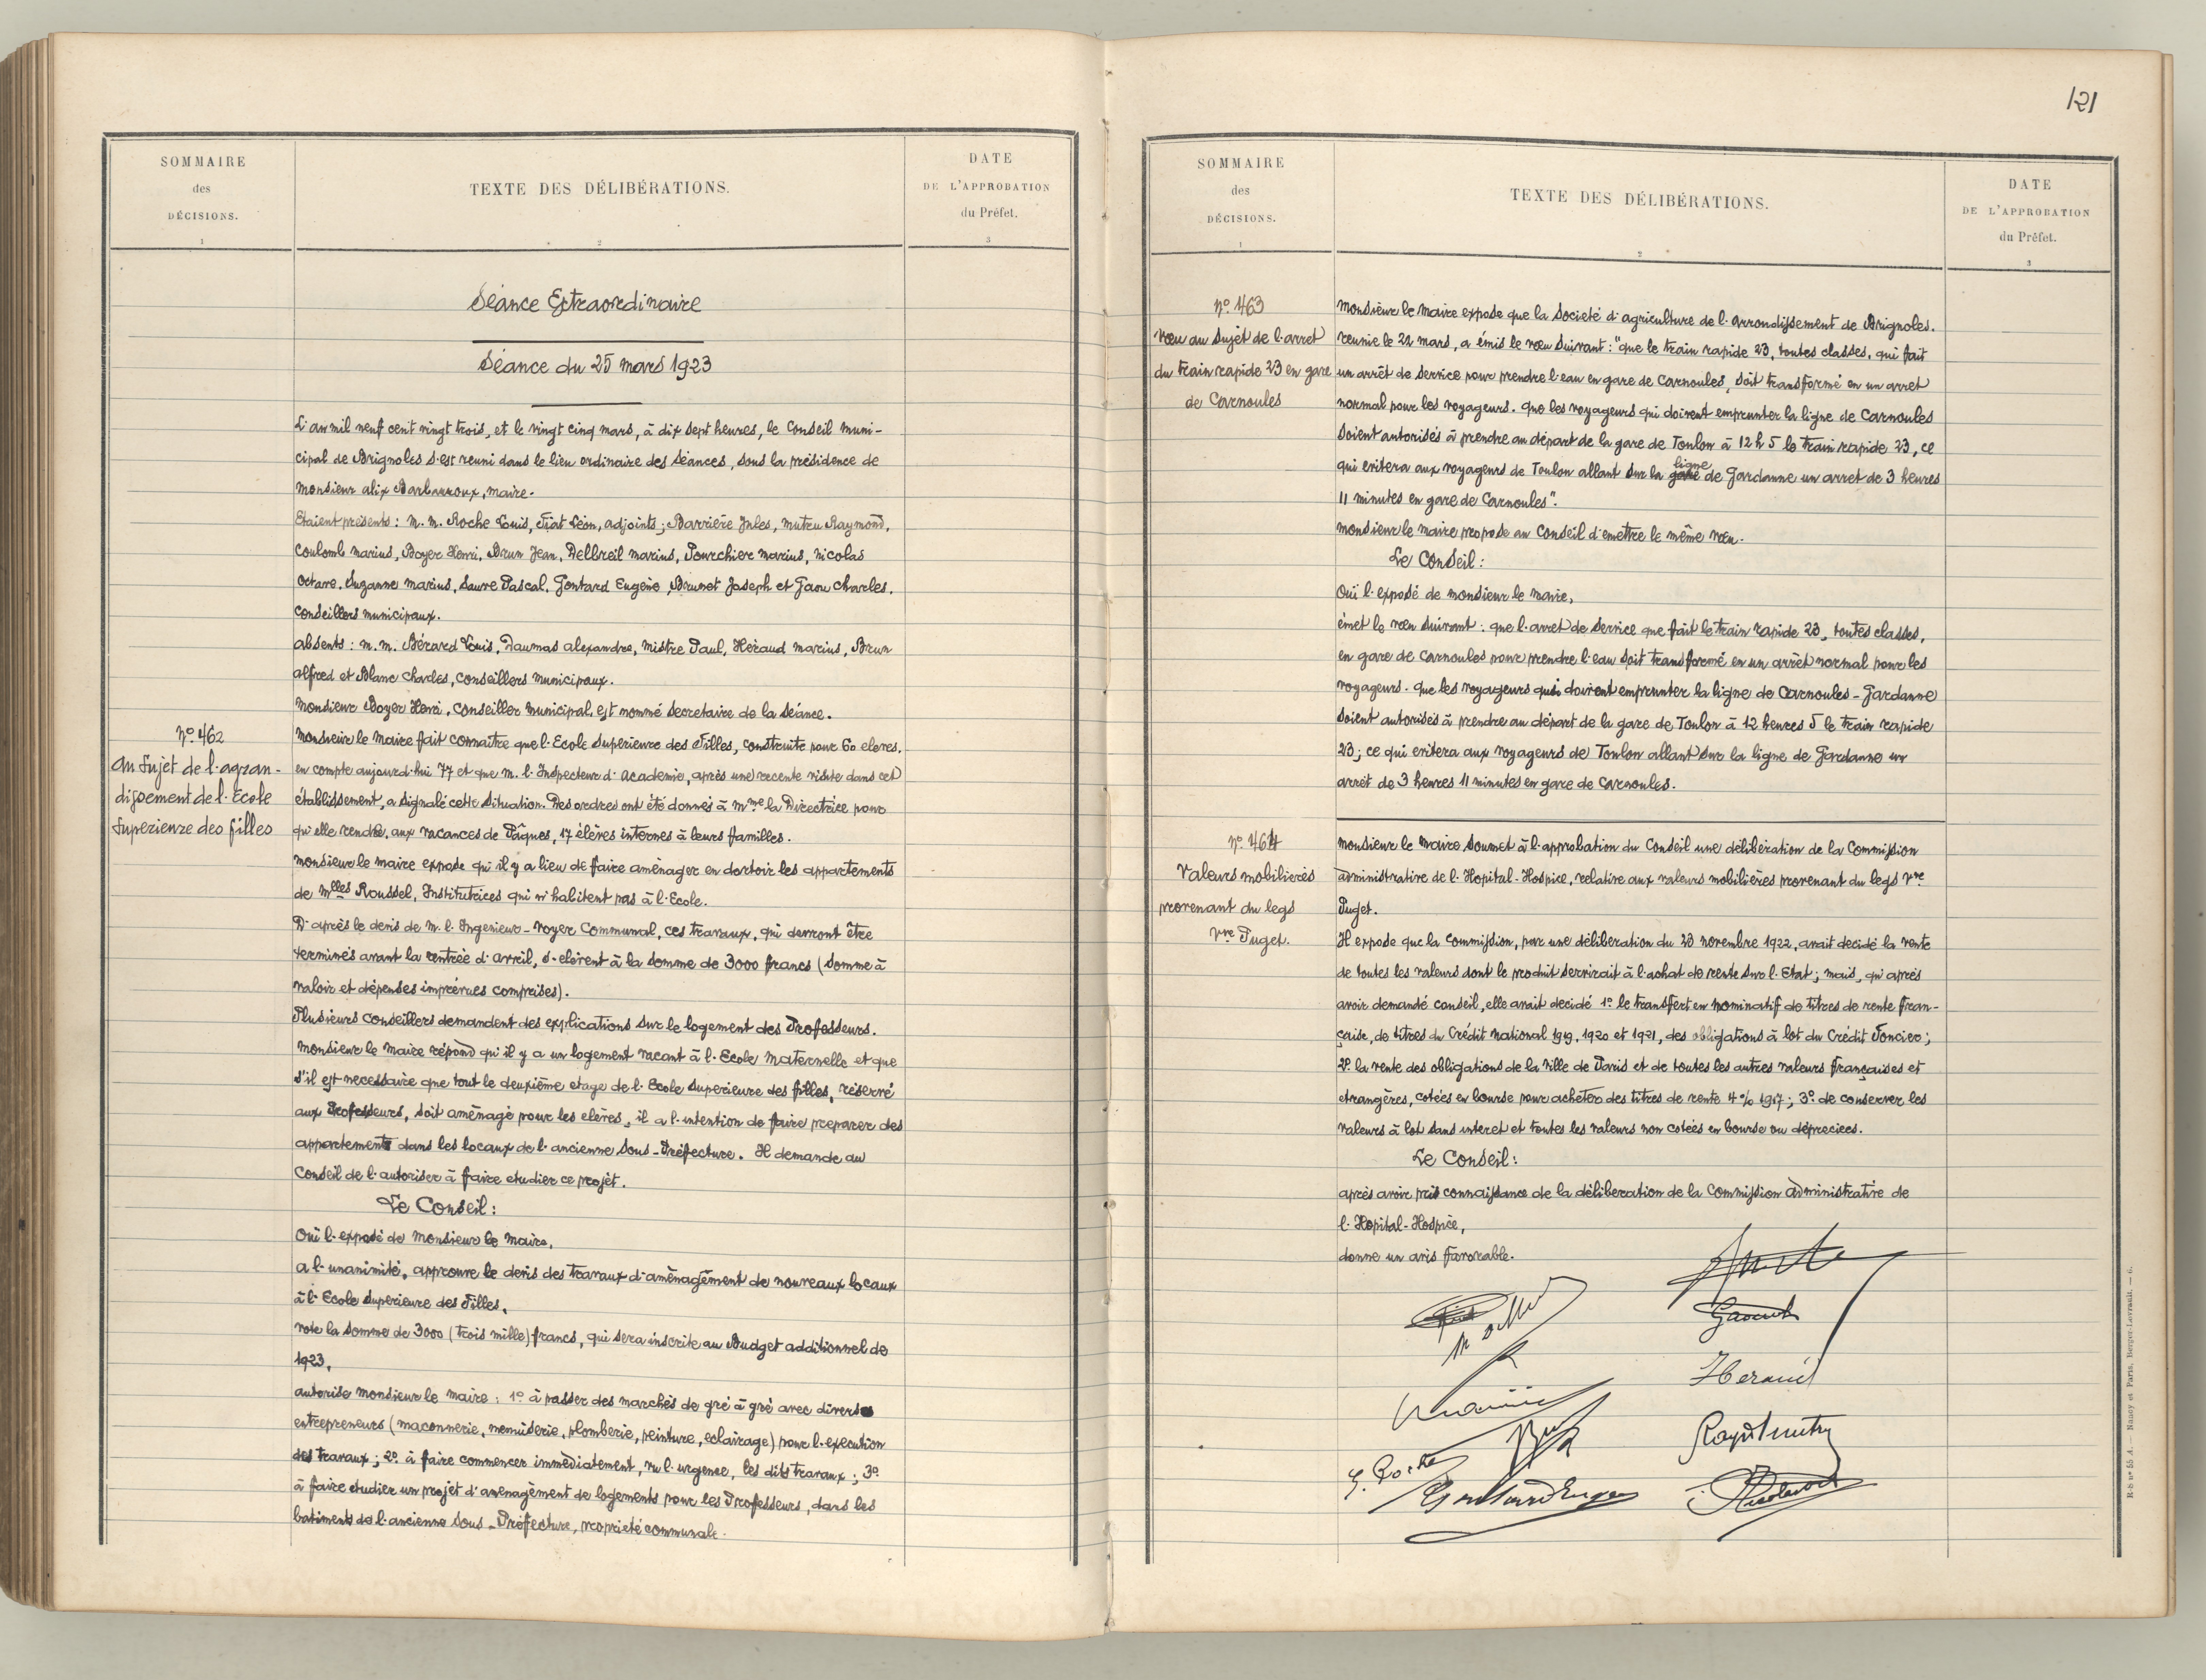 SOMMAIRE
des
DÉCISIONS.
1
TEXTE DES DÉLIBÉRATIONS.
2
DATE
DE L'APPROBATION
du Préfet.
3
Séance Extraordinaire
Séance du 25 mars 1923
L'an mil neuf cent vingt trois, et le vingt cinq mars, à dix sept heures, le Conseil muni-
cipal de Brignoles s'est reuni dans le lieu ordinaire des séances, sous la présidence de
monsieur alix Barbarroux, maire.
Etaient présents : m. m. Roche Louis, Fiat Léon, adjoints ; Barrière Jules, mutru Raymond,
Coulomb marius, Boyer Henri, Brun Jean, Delbreil marius, Pourchier marius, nicolas
octave, Suzanne marius, Sauve Pascal, Gontard Eugène, Brunet Joseph et Gaou Charles,
conseillers municipaux.
absents : m. m. Bérard Louis, Daumas alexandre, mistre Paul, Héraud marius, Brun
alfred et Blanc Charles, conseillers municipaux.
monsieur Boyer Henri, conseiller municipal, est nommé secretaire de la séance.
n° 462
au sujet de l'agran-
dissement de l'Ecole
superieure des filles
monsieur le maire fait connaître que l'Ecole superieure des Filles, construite pour 60 eleves,
en compte aujourd'hui 77 et que m. l'Inspecteur d'academie, après une recente visite dans cet
établissement, a signalé cette situation. Des ordres ont été donnés à mme la Directrice pour
qu'elle rende, aux vacances de Pâques, 17 élèves internes à leurs familles.
monsieur le maire expose qu'il y a lieu de faire aménager en dortoir les appartements
de mlles Roussel, Institutrices qui n'habitent pas à l'Ecole.
D'après le devis de m. l'Ingenieur-voyer communal, ces travaux, qui devront être
terminés avant la rentrée d'avril, s'elèvent à la somme de 3000 francs (somme à
valoir et dépenses imprévues comprises).
Plusieurs conseillers demandent des explications sur le logement des Professeurs.
monsieur le maire répond qu'il y a un logement vacant à l'Ecole maternelle et que
s'il est necessaire que tout le deuxième etage de l'Ecole superieure des filles, réservé
aux Professeurs, soit aménagé pour les elèves, il a l'intention de faire preparer des
appartements dans les locaux de l'ancienne Sous-Préfecture. Il demande au
conseil de l'autoriser à faire etudier ce projet.
Le Conseil :
Ouï l'exposé de monsieur le maire,
a l'unanimité, approuve le devis des travaux d'aménagement de nouveaux locaux
à l'Ecole superieure des Filles,
vote la somme de 3000 (trois mille) francs, qui sera inscrite au Budget additionnel de
1923,
autorise monsieur le maire : 1° à passer des marchés de gré à gré avec divers
entrepreneurs (maconnerie, menuiserie, plomberie, peinture, eclairage) pour l'execution
des travaux ; 2° à faire commencer immédiatement, vu l'urgence, les dits travaux ; 3°
à faire etudier un projet d'amenagement de logements pour les Professeurs, dans les
batiments de l'ancienne Sous-Préfecture, propriété communale.
121
SOMMAIRE
des
DÉCISIONS.
1
TEXTE DES DÉLIBÉRATIONS.
2
DATE
DE L'APPROBATION
du Préfet.
3
n° 463
vœu au sujet de l'arret
du train rapide 23 en gare
de Carnoules
monsieur le maire expose que la société d'agriculture de l'arrondissement de Brignoles,
reunie le 22 mars, a émis le vœu suivant : "que le train rapide 23, toutes classes, qui fait
un arrêt de service pour prendre l'eau en gare de Carnoules, soit transformé en un arret
normal pour les voyageurs. que les voyageurs qui doivent emprunter la ligne de Carnoules
soient autorisés à prendre au départ de la gare de Toulon à 12 h 5 le train rapide 23, ce
qui evitera aux voyageurs de Toulon allant sur la gare ligne de Gardanne un arret de 3 heures
11 minutes en gare de Carnoules".
monsieur le maire propose au conseil d'emettre le même vœu.
Le Conseil :
Ouï l'exposé de monsieur le maire,
émet le vœu suivant : que l'arret de service que fait le train rapide 23, toutes classes,
en gare de Carnoules pour prendre l'eau soit transformé en un arrêt normal pour les
voyageurs. que les voyageurs qui doivent emprunter la ligne de Carnoules-Gardanne
soient autorisés à prendre au départ de la gare de Toulon à 12 heures 5 le train rapide
23 ; ce qui evitera aux voyageurs de Toulon allant sur la ligne de Gardanne un
arrêt de 3 heures 11 minutes en gare de Carnoules.
n° 464
Valeurs mobilieres
provenant du legs
Vve Puget.
monsieur le maire soumet à l'approbation du Conseil une délibération de la Commission
administrative de l'Hopital-Hospice, relative aux valeurs mobilières provenant du legs Vve
Puget.
Il expose que la commission, par une délibération du 23 novembre 1922, avait decidé la vente
de toutes les valeurs dont le produit servirait à l'achat de rente sur l'Etat ; mais, qu'après
avoir demandé conseil, elle avait decidé 1° le transfert en nominatif de titres de rente fran-
çaise, de titres du Crédit national 1919, 1920 et 1921, des obligations à lot du Crédit Foncier ;
2° la vente des obligations de la ville de Paris et de toutes les autres valeurs françaises et
etrangères, cotées en bourse pour acheter des titres de rente 4% 1917 ; 3° de conserver les
valeurs à lot sans interet et toutes les valeurs non cotées en bourse ou dépreciees.
Le Conseil :
après avoir pris connaissance de la déliberation de la Commission administrative de
l'Hopital-Hospice,
donne un avis favorable.
Héraud
L. Roche
Gontard Eugène
R-S n° 55 A. — Nancy et Paris, Berger-Levrault. — 6.